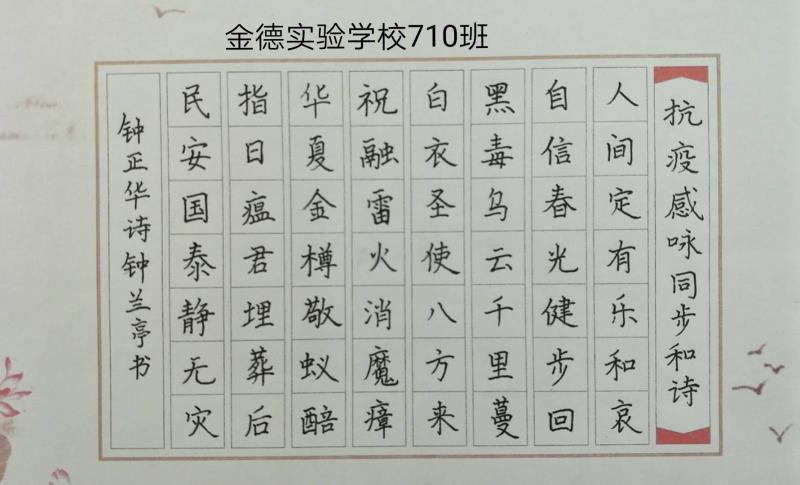 金德实验学校710班
抗疫感咏同步和诗
人间定有乐和哀
自信春光健步回
黑毒乌云千里蔓
白衣圣使八方来
祝融雷火消魔瘴
华夏金樽敬蚁醅
指日瘟君埋葬后
民安国泰静无灾
钟正华诗钟兰亭书